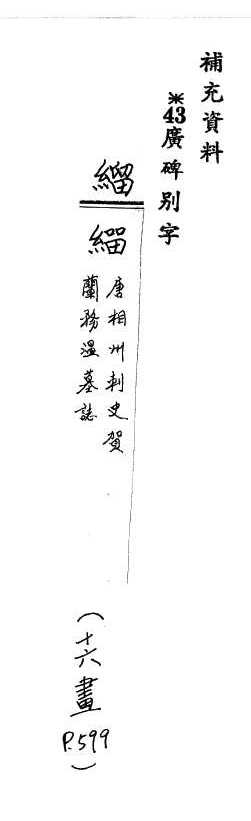 補充資料
※43廣碑別字
唐相州刺史賀
蘭務溫墓誌
(十六畫
P.599)